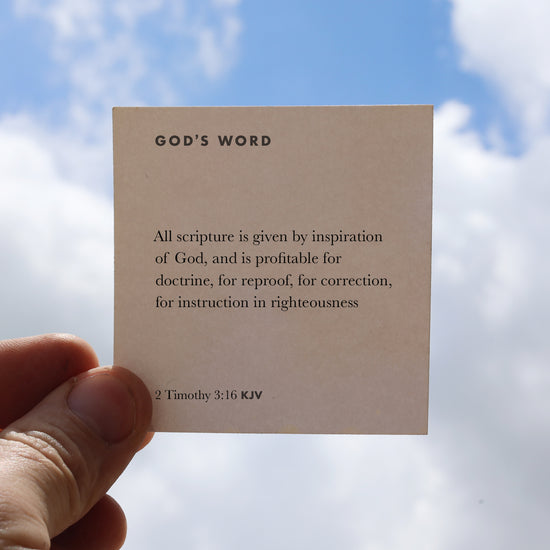 GOD'S WORD
All scripture is given by inspiration
of God, and is profitable for
doctrine, for reproof, for correction,
for instruction in righteousness
2 Timothy 3:16 KJV